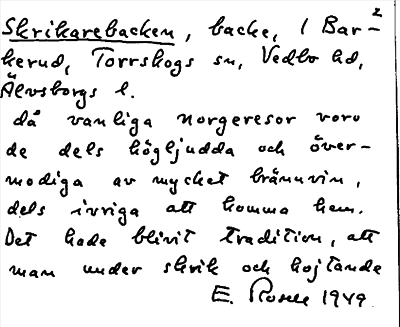 2
Skrikarebacken, backe, i Bar-
kerud, Torrskogs sn, Vedbo hd,
Älvsborgs l.
då vanliga norgeresor voro
de dels högljudda och över-
modiga av mycket brännvin,
dels ivriga att komma hem.
Det hade blivit tradition, att
man under skrik och hojtande
E. Rosell 1949.